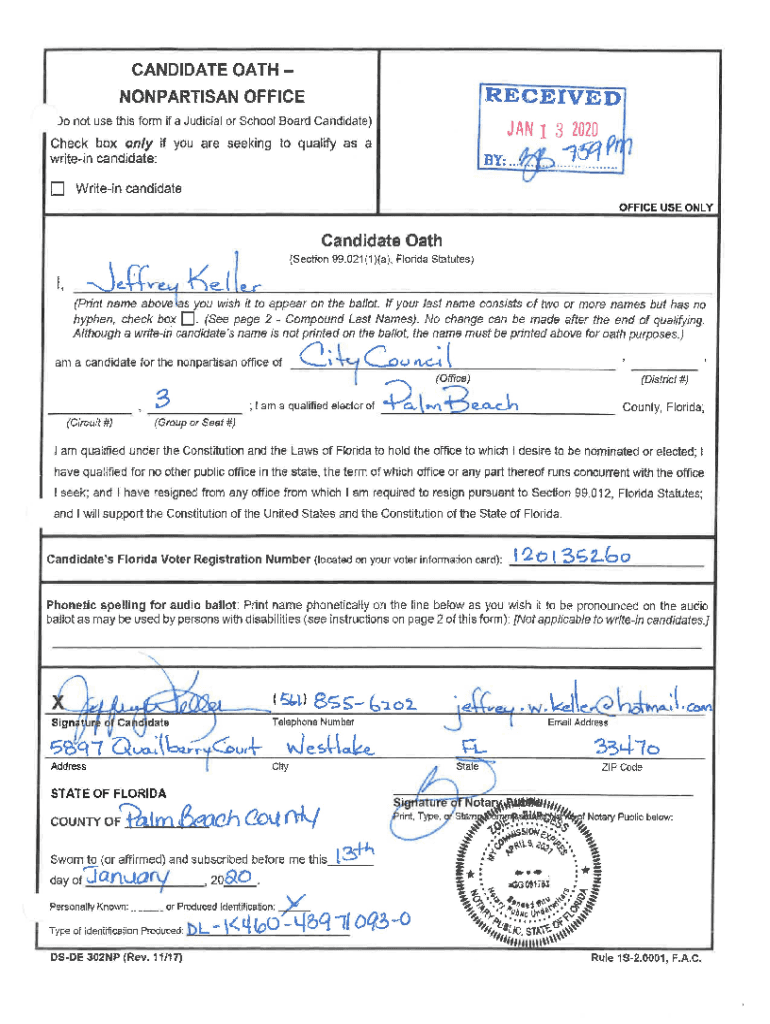 CANDIDATE OATH –
NONPARTISAN OFFICE
Do not use this form if a Judicial or School Board Candidate)
Check box only if you are seeking to qualify as a
write-in candidate:
☐ Write-in candidate
RECEIVED
JAN 13 2020
BY: 759 PM
OFFICE USE ONLY
Candidate Oath
(Section 99.021(1)(a), Florida Statutes)
I, Jeffrey Keller
(Print name above as you wish it to appear on the ballot. If your last name consists of two or more names but has no
hyphen, check box ☐. (See page 2 - Compound Last Names). No change can be made after the end of qualifying.
Although a write-in candidate's name is not printed on the ballot, the name must be printed above for oath purposes.)
am a candidate for the nonpartisan office of City Council , ,
(Office) (District #)
, 3 ; I am a qualified elector of Palm Beach County, Florida;
(Circuit #) (Group or Seat #)
I am qualified under the Constitution and the Laws of Florida to hold the office to which I desire to be nominated or elected; I
have qualified for no other public office in the state, the term of which office or any part thereof runs concurrent with the office
I seek; and I have resigned from any office from which I am required to resign pursuant to Section 99.012, Florida Statutes;
and I will support the Constitution of the United States and the Constitution of the State of Florida.
Candidate's Florida Voter Registration Number (located on your voter information card): 120135260
Phonetic spelling for audio ballot: Print name phonetically on the line below as you wish it to be pronounced on the audio
ballot as may be used by persons with disabilities (see instructions on page 2 of this form): [Not applicable to write-in candidates.]
X Jeffrey Keller (561) 855-6202 jeffrey.w.keller@hotmail.com
Signature of Candidate Telephone Number Email Address
5897 Quailberry Court Westlake FL 33470
Address City State ZIP Code
STATE OF FLORIDA
COUNTY OF Palm Beach County
Signature of Notary Public
Print, Type, or Stamp of Notary Public below:
Sworn to (or affirmed) and subscribed before me this 13th
day of January, 2020.
Personally Known: or Produced Identification: X
Type of Identification Produced: DL-K460-43971093-0
ZOIE BURGESS
MY COMMISSION EXPIRES
APRIL 9, 2021
Bonded thru
Notary Public Underwriters
NOTARY PUBLIC, STATE OF FLORIDA
DS-DE 302NP (Rev. 11/17) Rule 1S-2.0001, F.A.C.